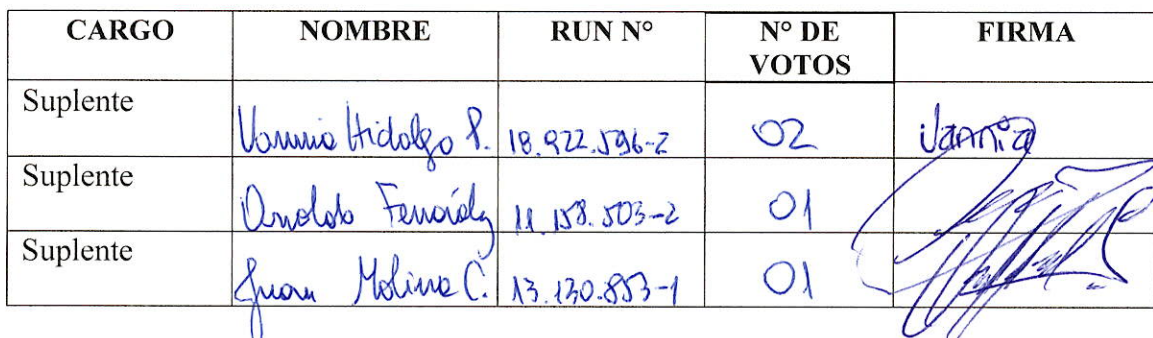 CARGO NOMBRE RUN Nº Nº DE VOTOS FIRMA
Suplente Vannia Hidalgo P. 18.922.596-2 02 Vannia
Suplente Arnoldo 11.158.503-2 01
Suplente Juan Molina C. 13.130.853-1 01